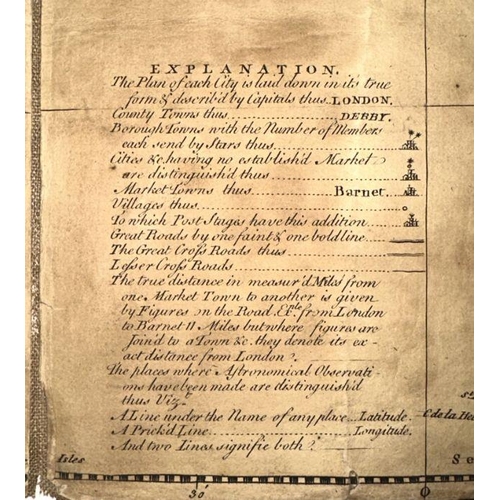 EXPLANATION.
The Plan of each City is laid down in its true
form & describ'd by Capitals thus..LONDON.
County Towns thus .................. DERBY.
Borough Towns with the Number of Members
each send by Stars thus.............
Cities &c having no establish'd Market
are distinguish'd thus..............
Market Towns thus ............ Barnet
Villages thus.......................
To which Post Stages have this addition.....
Great Roads by one faint & one bold line....
The Great Cross Roads thus..........
Lesser Cross Roads..................
The true distance in measur'd Miles from
one Market Town to another is given
by Figures on the Road. Ex.ple from London
to Barnet 11 Miles but where figures are
join'd to a Town &c. they denote its ex-
act distance from London.
The places where Astronomical Observati-
ons have been made are distinguish'd
thus Viz.
A Line under the Name of any place...Latitude.
A Prick'd Line.................Longitude.
And two Lines signifie both.
C de la He
Isles
Se
30'
0